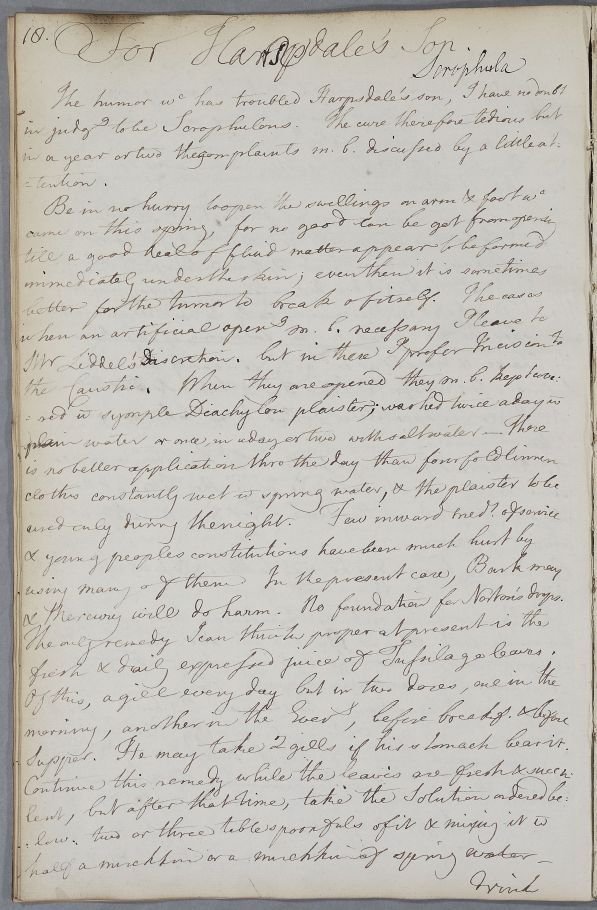 18.
For Harpsdale's Son.
Scrophula
The humor wc has troubled Harpsdale's son, I have no doubt
in judgg to be Scrophulous. The cure therefore tedious but
in a year or two the complaints m. b. discussed by a little at-
-tention.
Be in no hurry to open the swellings on arm & foot wc
came on this spring, for no good can be got from opening
till a good deal of fluid matter appear to be formed
immediately under the skin; even then it is sometimes
better for the tumor to break of itself. The cases
when an artificial openg m. b. necessary I leave to
Mr Liddel's Discretion. but in these I prefer Incision to
the Caustic. When they are opened they m. b. kept cove-
-red w symple Diachylon plaister; washed twice a day w
plain water or once in a day or two with salt water — There
is no better application thro the day than four fold linnen
cloths constantly wet w spring water, & the plaister to be
used only during the night. Few inward medl. of service
& young peoples constitutions have been much hurt by
using many of them. In the present case, Bark may
& Mercury will do harm. No foundation for Norton's drops.
The only remedy I can think proper at present is the
fresh & daily expressed juice of Tussilago leaves.
Of this, a gill every day but in two doces, one in the
morning, another in the Eveng, before breakft. & before
Supper. He may take 2 gills if his stomach bear it.
Continue this remedy while the leaves are fresh & succu-
lent, but after that time, take the Solution ordered be-
-low. two or three tablespoonfuls of it & mixing it w
half a mutchkin or a mutchkin of spring water —
Drink